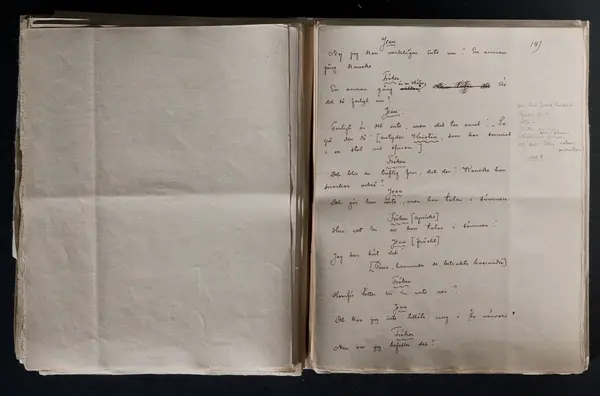 19)
Jean
Nej jag kan verkligen inte nu! En annan
gång kanske.
Fröken
En annan gång Är
det så farligt nu?
Jean
Farligt är det inte, men det tar emot! – Se
på den då! [antyder Kristin, som har somnat
i en stol vid spisen.]
Fröken
Det blir en trefig fru, det der! Kanske hon
snarkar också?
Jean
Det gör hon inte, men hon talar i sömnen
Fröken [cyniskt]
Hur vet du att hon talar i sömnen?
Jean [fräckt]
Jag har hört det!
[Paus, hvarunder de betrakta hvarandra]
Fröken
Hvarför sitter du inte ner?
Jean
Det kan jag inte tillåta mig i Er närvaro!
Fröken
Men om jag befaller det?